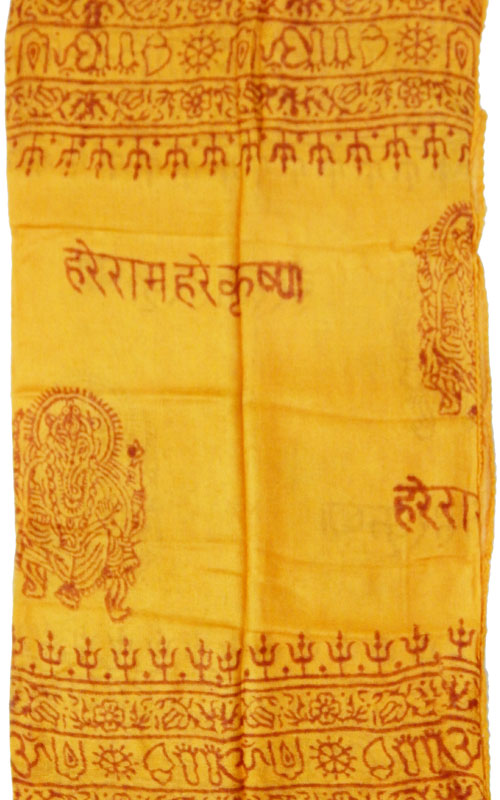 हरेरामहरेकृष्ण
हरेरा
ॐ
ॐ